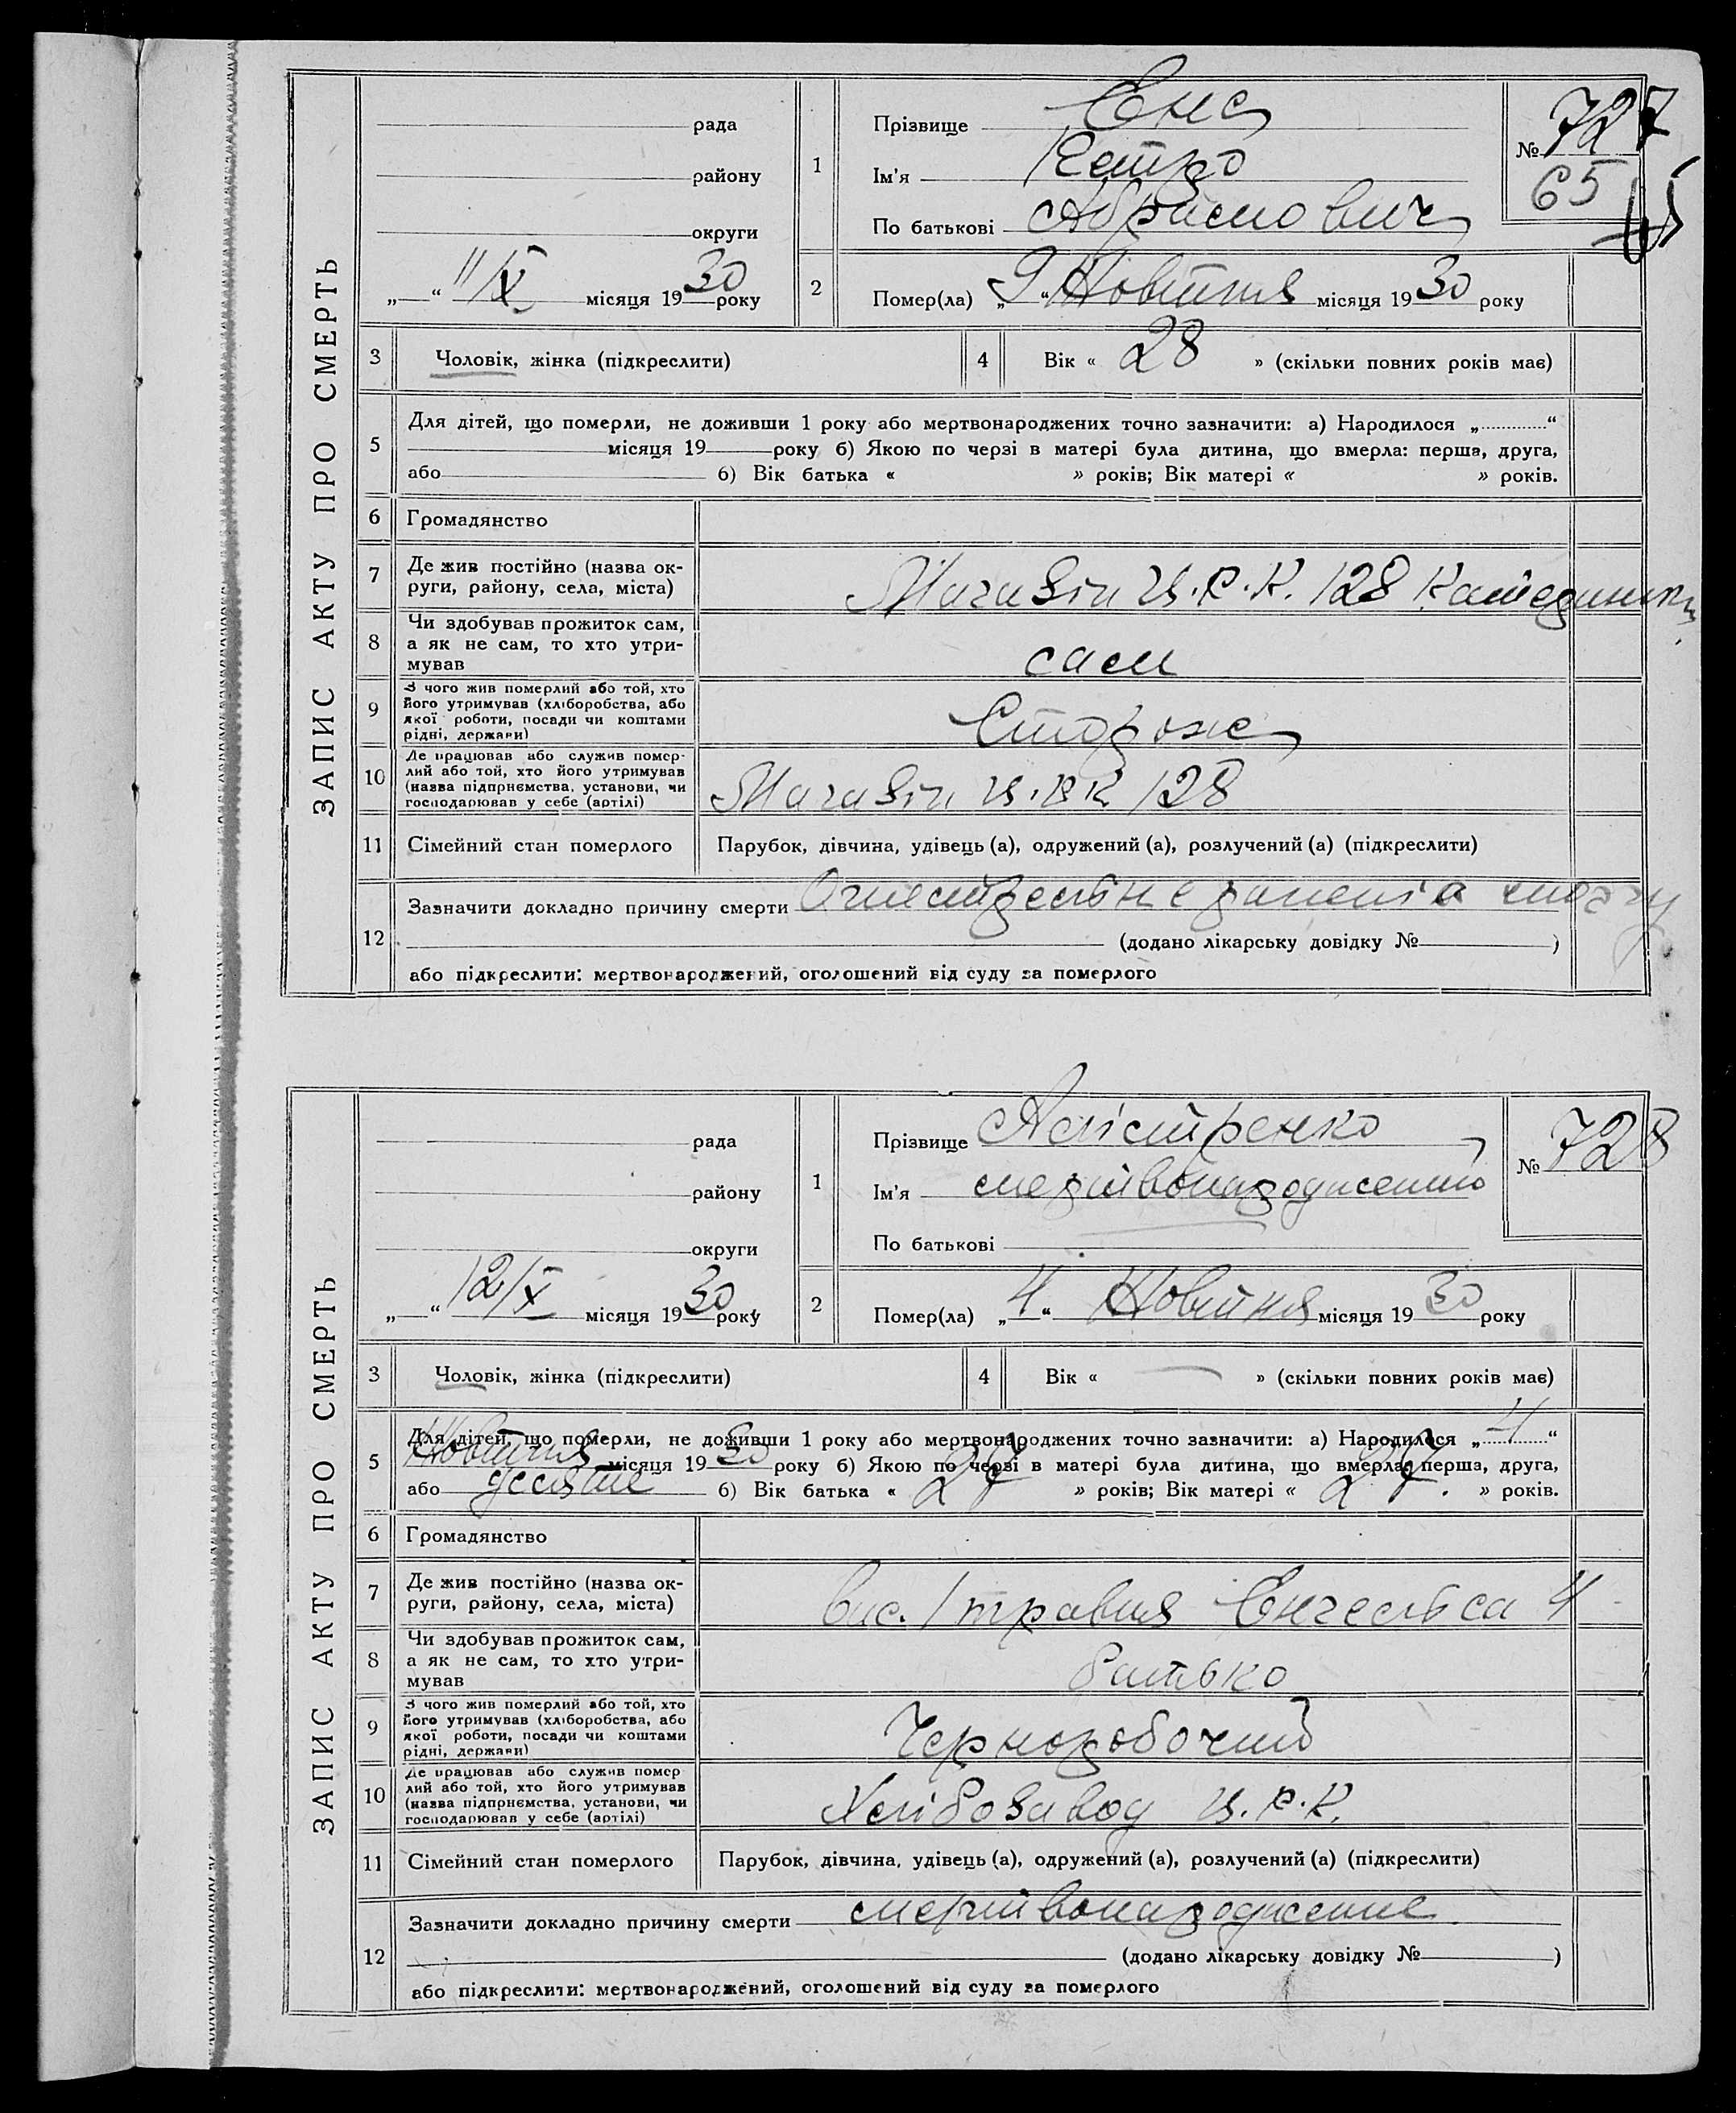 ЗАПИС АКТУ ПРО СМЕРТЬ
рада
району
округи
11/X місяця 1930 року
1
Прізвище Енс
Ім'я Петро
По батькові Абрамович
№ 727
65
2
Помер(ла) „9“ Жовтня місяця 1930 року
3
Чоловік, жінка (підкреслити)
4
Вік « 28 » (скільки повних років має)
5
Для дітей, що померли, не доживши 1 року або мертвонароджених точно зазначити: а) Народилося „ “
місяця 19 року б) Якою по черзі в матері була дитина, що вмерла: перша, друга,
або 6) Вік батька « » років; Вік матері « » років.
6
Громадянство
7
Де жив постійно (назва ок-
руги, району, села, міста)
Магазін Ц.Р.К. 128
8
Чи здобував прожиток сам,
а як не сам, то хто утри-
мував
сам
9
З чого жив померлий або той, хто
його утримував (хліборобства, або
якої роботи, посади чи коштами
рідні, держави)
Сторож
10
Де працював або служив помер-
лий або той, хто його утримував
(назва підприємства, установи, чи
господарював у себе (артілі)
Магазін Ц.РК 128
11
Сімейний стан померлого
Парубок, дівчина, удівець (а), одружений (а), розлучений (а) (підкреслити)
12
Зазначити докладно причину смерти Огнестрельне ранения
(додано лікарську довідку № )
або підкреслити: мертвонароджений, оголошений від суду за померлого
ЗАПИС АКТУ ПРО СМЕРТЬ
рада
району
округи
12/X місяця 1930 року
1
Прізвище Алістренко
Ім'я мертвонародженно
По батькові
№ 728
2
Помер(ла) „4“ Жовтня місяця 1930 року
3
Чоловік, жінка (підкреслити)
4
Вік « — » (скільки повних років має)
5
Для дітей, що померли, не доживши 1 року або мертвонароджених точно зазначити: а) Народилося „4“
Жовтня місяця 1930 року б) Якою по черзі в матері була дитина, що вмерла: перша, друга,
або десяте 6) Вік батька « 27 » років; Вік матері « 27. » років.
6
Громадянство
7
Де жив постійно (назва ок-
руги, району, села, міста)
Вис. 1 травня Енгельса 4
8
Чи здобував прожиток сам,
а як не сам, то хто утри-
мував
батько
9
З чого жив померлий або той, хто
його утримував (хліборобства, або
якої роботи, посади чи коштами
рідні, держави)
Чернозобочий
10
Де працював або служив помер
лий або той, хто його утримував
(назва підприємства, установи, чи
господарював у себе (артілі)
Хлібозавод Ц.Р.К.
11
Сімейний стан померлого
Парубок, дівчина, удівець (а), одружений (а), розлучений (а) (підкреслити)
12
Зазначити докладно причину смерти мертвонародженне
(додано лікарську довідку № )
або підкреслити: мертвонароджений, оголошений від суду за померлого